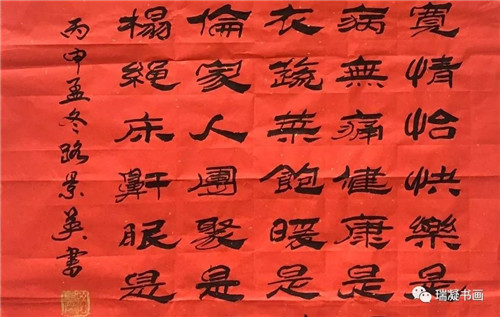 寬情怡快樂是
病無痛健康是
衣蔬菜飽暖是
倫家人團聚是
榻繩床鼾眠是
丙申孟冬路景英書
瑞凝书画